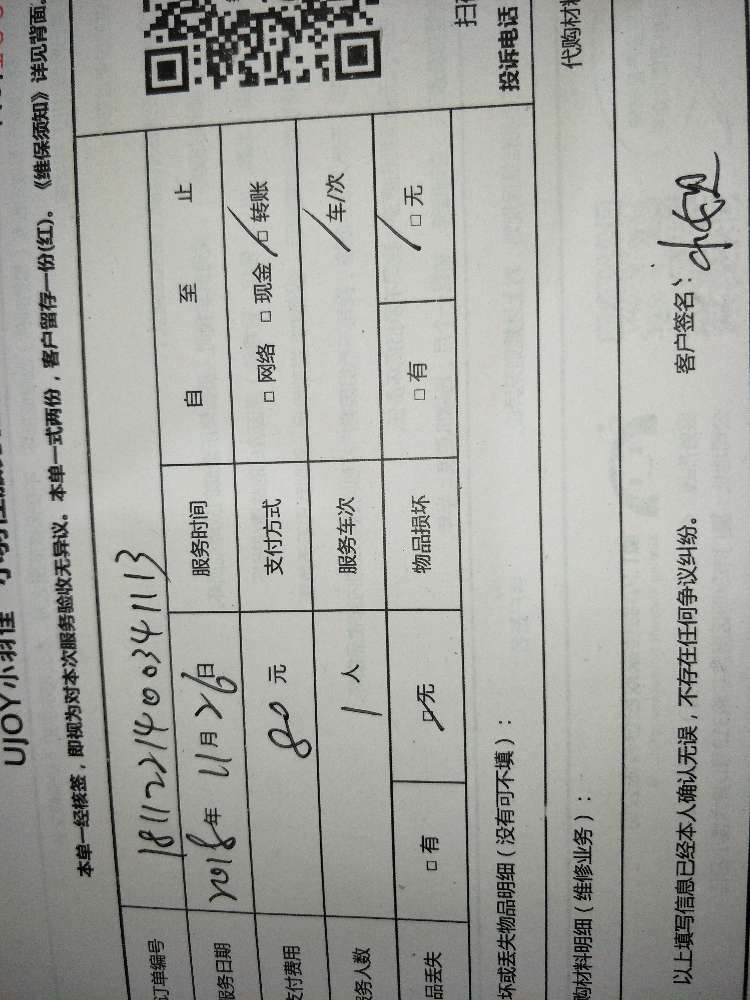 UJOY小羽佳
本单一经核签，即视为对本次服务验收无异议。本单一式两份，客户留存一份(红)。《维保须知》详见背面。
订单编号 18112214000341113
服务日期 2018年11月26日 服务时间 自 至 止
支付费用 80元 支付方式 □ 网络 □ 现金 □ 转账
服务人数 1人 服务车次 / 车/次
品丢失 □ 有 □ 无 物品损坏 □ 有 □ 无
坏或丢失物品明细（没有可不填）：
投诉电话
购材料明细（维修业务）：
代购材料
以上填写信息已经本人确认无误，不存在任何争议纠纷。 客户签名：